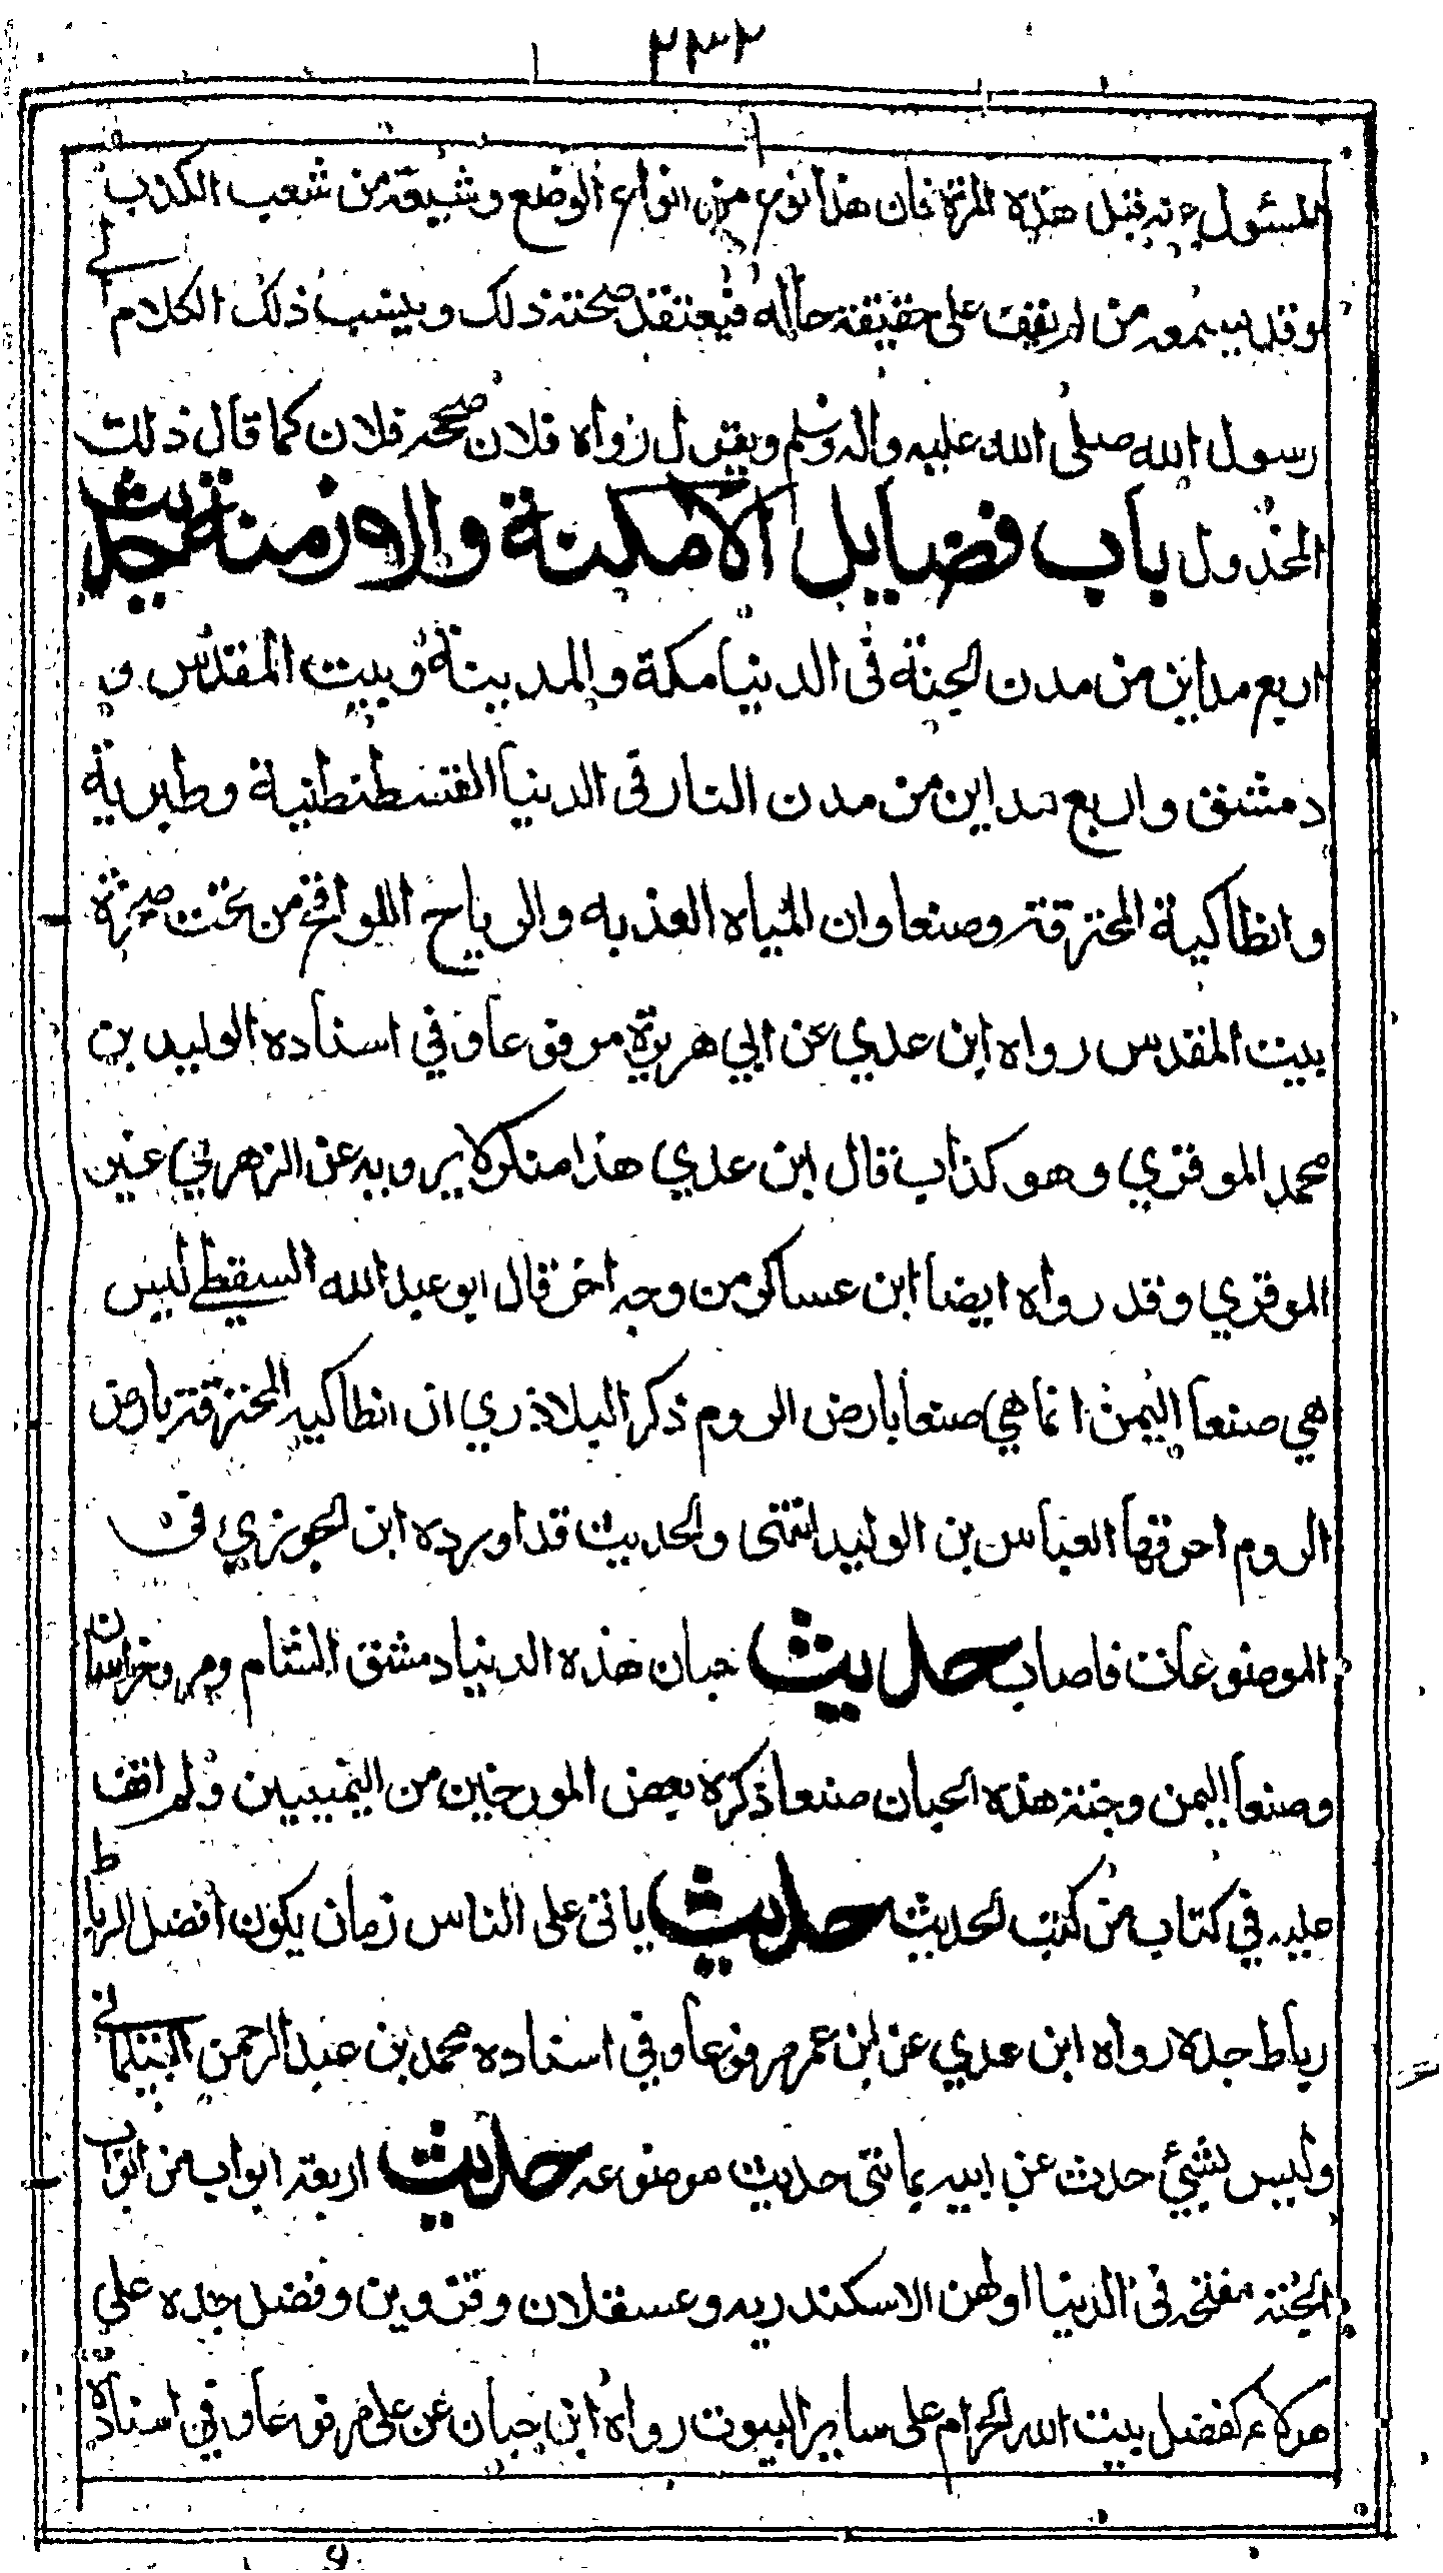 ٢٣٢
المسئول عنه قبل هذه المرة فان هذا نوع من انواع الوضع وشيعة من شعب الكذب
وقد يسمعه من لم يقف على حقيقة حاله فيعتقد صحته ذلك وينسب ذلك الكلام الى
رسول الله صلى الله عليه واله وسلم ويقول رواه فلان صححه فلان كما قال ذلك
المخذول باب فضايل الامكنة والازمنة حديث
اربع مداين من مدن الجنة فى الدنيا مكة والمدينة وبيت المقدس و
دمشق واربع مداين من مدن النار فى الدنيا القسطنطنية وطبرية
وانطاكية المحترقة وصنعا وان المياه العذبه والرياح اللواقح من تحت صخرة
بيت المقدس رواه ابن عدي عن ابي هريرة مرفوعا وفي اسناده الوليد بن
محمد الموقري وهو كذاب قال ابن عدي هذا منكر لا يرويه عن الزهري غير
الموقري وقد رواه ايضا ابن عساكر من وجه اخر قال ابو عبد الله السقطي ليس
هي صنعا اليمن انما هي صنعا بارض الروم ذكر البلاذري ان انطاكيه المحترقة بارض
الروم احرقها العباس بن الوليد انتهى والحديث قد اورده ابن الجوزي فى
الموضوعات فاصاب حديث جبان هذه الدنيا دمشق الشام ومرو خراسان
وصنعا اليمن وجنة هذه الجبان صنعا ذكره بعض المورخين من اليمنيين ولم اقف
عليه في كتاب من كتب الحديث حديث ياتى على الناس زمان يكون افضل الرباط
رباط جدة رواه ابن عدي عن ابن عمر مرفوعا وفي اسناده محمد بن عبد الرحمن البيلمانى
وليس بشئ حدث عن ابيه بمائتى حديث موضوعه حديث اربعة ابواب من ابواب
الجنة مفتحه فى الدنيا اولهن الاسكندريه وعسقلان وقزوين وفضل جده على
هولاء كفضل بيت الله الحرام على ساير البيوت رواه ابن حبان عن على مرفوعا وفي اسناده